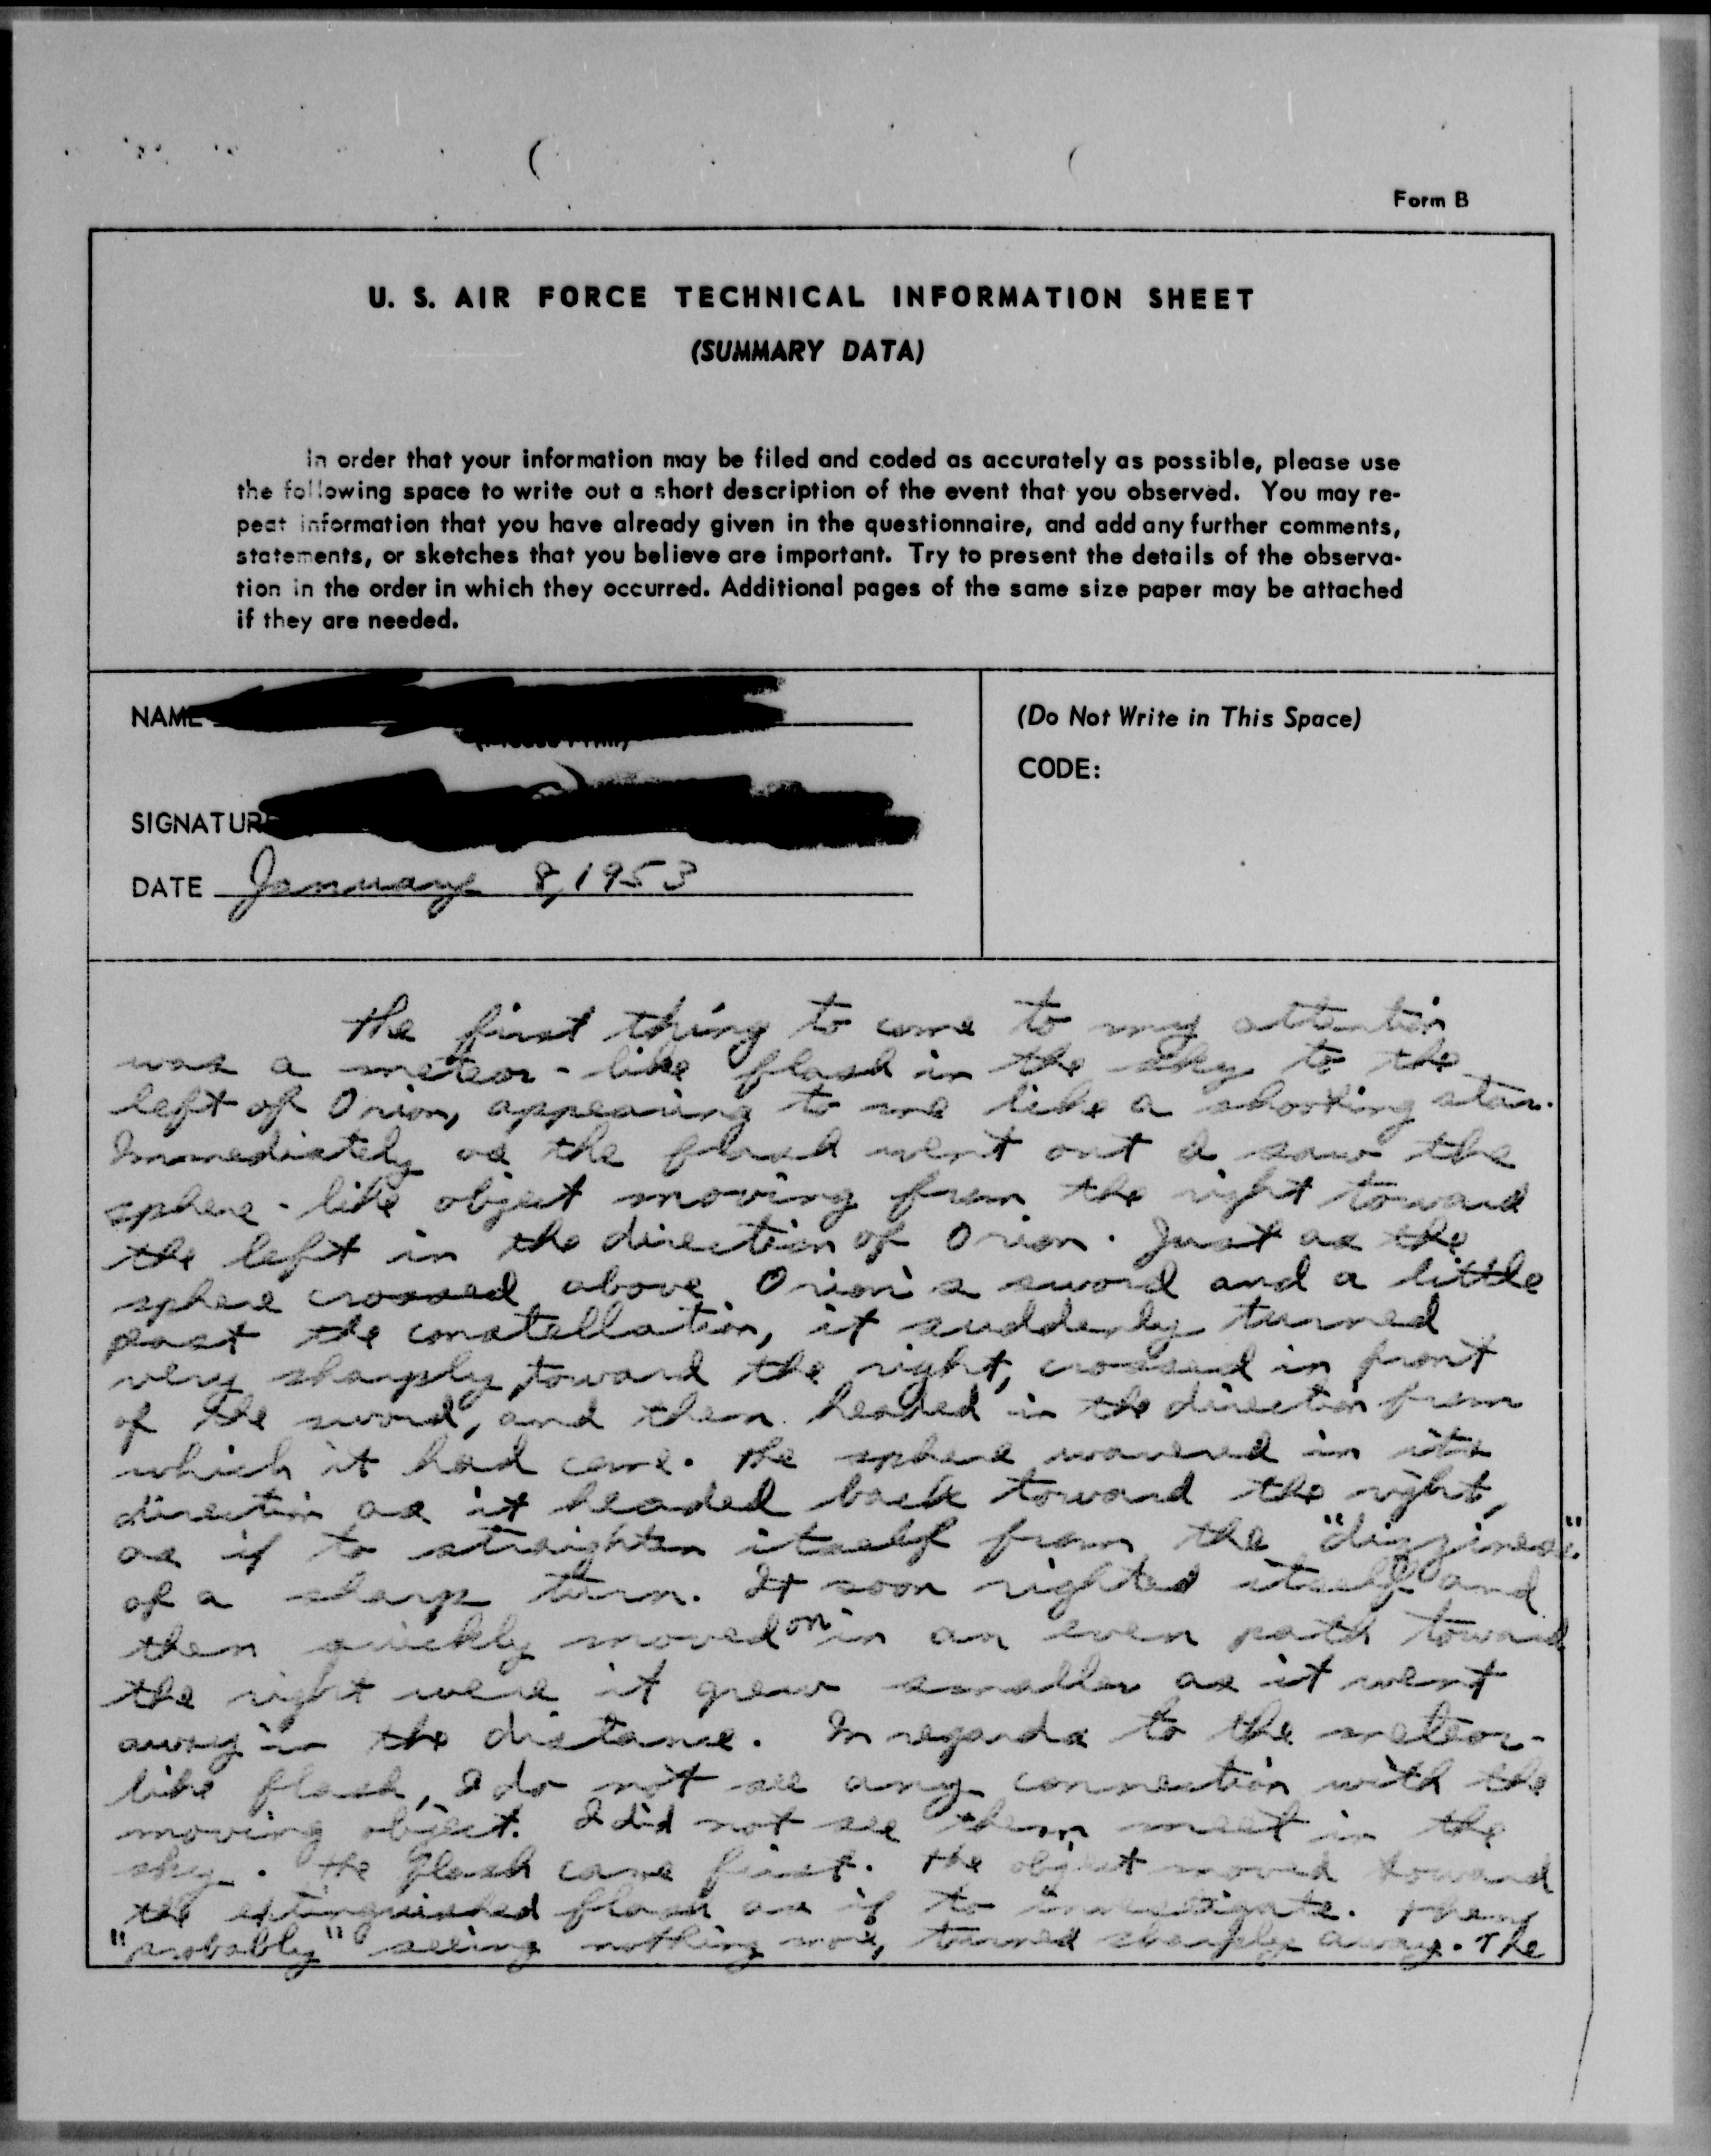 Form B
U. S. AIR FORCE TECHNICAL INFORMATION SHEET
(SUMMARY DATA)
In order that your information may be filed and coded as accurately as possible, please use
the following space to write out a short description of the event that you observed. You may re-
peat information that you have already given in the questionnaire, and add any further comments,
statements, or sketches that you believe are important. Try to present the details of the observa-
tion in the order in which they occurred. Additional pages of the same size paper may be attached
if they are needed.
NAME
(Do Not Write in This Space)
CODE:
SIGNATURE
DATE January 8, 1953
The first thing to come to my attention
was a meteor-like flash in the sky to the
left of Orion, appearing to me like a shooting star.
Immediately as the flash went out I saw the
sphere-like object moving from the right toward
the left in the direction of Orion. Just as the
sphere crossed above Orion's sword and a little
past the constellation, it suddenly turned
very sharply toward the right, crossed in front
of the sword, and then headed in the direction from
which it had come. The sphere wavered in its
direction as it headed back toward the right,
as if to straighten itself from the "dizziness"
of a sharp turn. It soon righted itself and
then quickly moved on in an even path toward
the right were it grew smaller as it went
away in the distance. In regards to the meteor-
like flash, I do not see any connection with the
moving object. I did not see them meet in the
sky. The flash came first. The object moved toward
the extinguished flash as if to investigate. Then,
"probably" seeing nothing more, turned sharply away. The